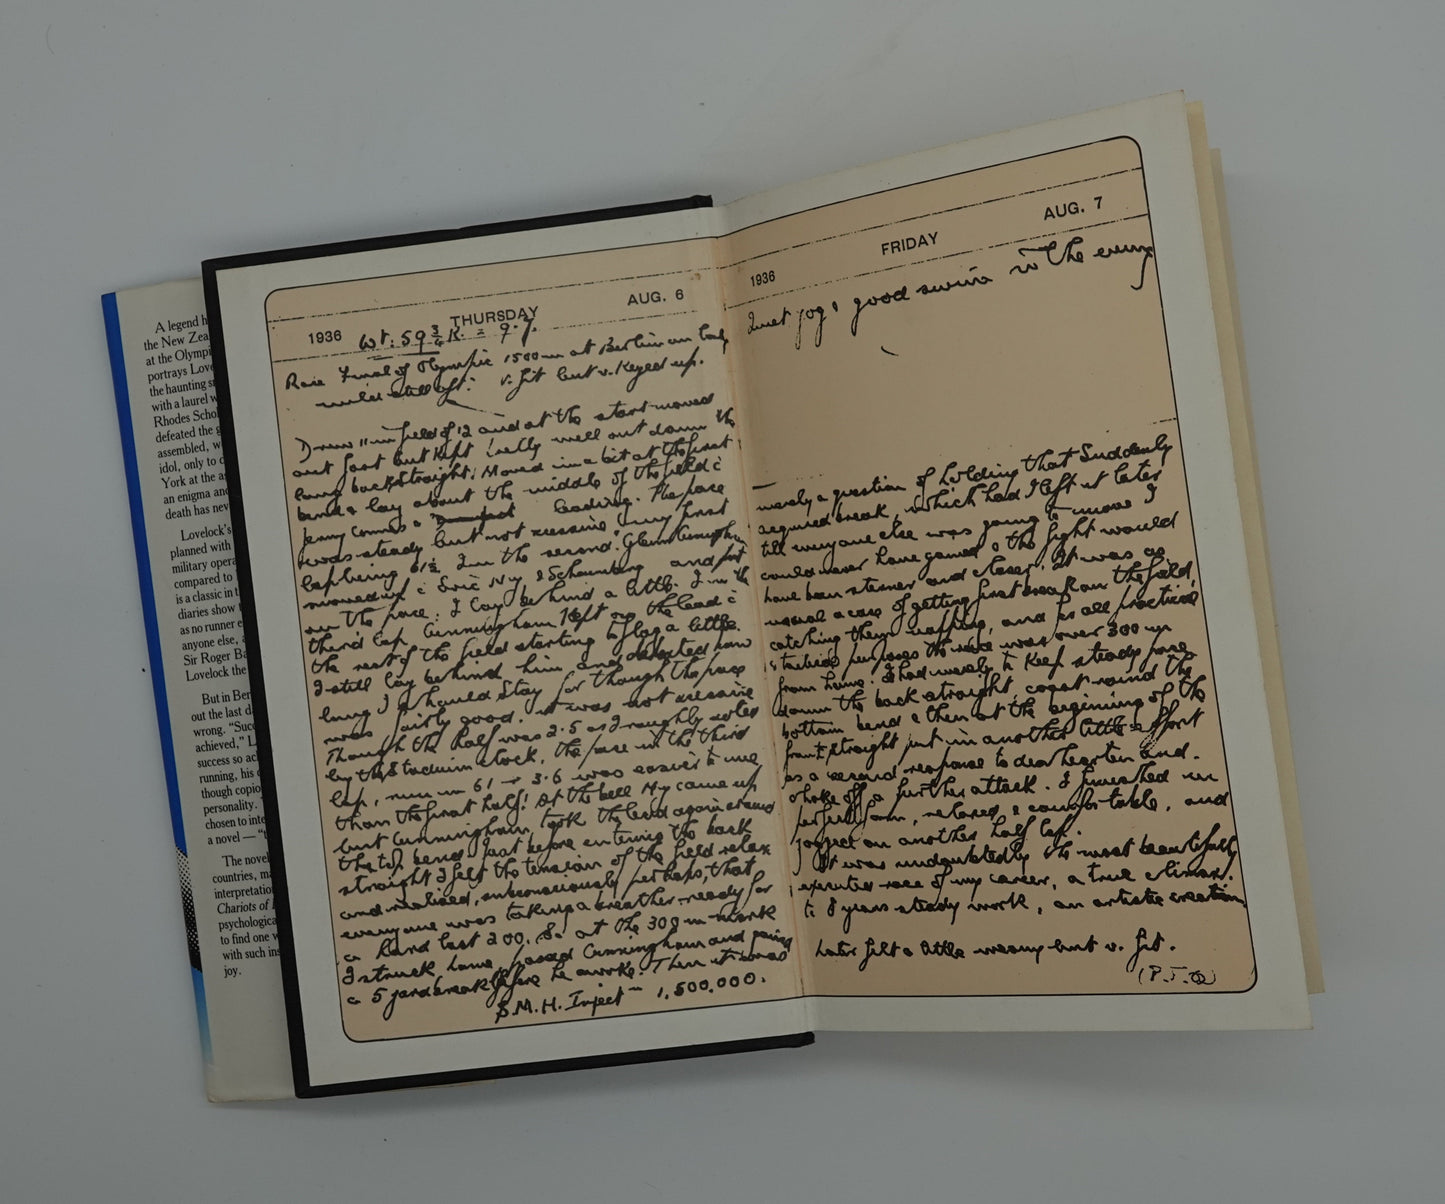 A legend h
the New Zea
at the Olympi
portrays Love
the haunting s
with a laurel w
Rhodes Schol
defeated the g
assembled, w
idol, only to d
York at the a
an enigma and
death has nev
Lovelock's
planned with
military opera
compared to
is a classic in t
diaries show t
as no runner e
anyone else, a
Sir Roger Ba
Lovelock the
But in Ber
out the last d
wrong. “Succ
achieved,” L
success so ac
running, his d
though copio
personality.
chosen to inte
a novel — “t
The novel
countries, ma
interpretatio
Chariots of F
psychological
to find one w
with such ins
joy.
1936 THURSDAY AUG. 6
Wt: 59¾ K. = 9.7.
Race Final of Olympic 1500m at Berlin on lovely
mild still aft: v. fit but v. keyed up.
Drew 11 in field of 12 and at the start moved
out fast but kept well out down the
long back straight. Moved in a bit at the first
bend & lay about the middle of the field c̄
leading. The pace
was steady but not excessive my first
lap being 61½. In the second Glenn Cunningham
moved up c̄ Eric Ny & Schaumburg and put
on the pace. I lay behind a little. In the
third lap Cunningham kept on the lead c̄
the rest of the field starting to flag a little.
I still lay behind him and debated how
long I should stay for though the pace
was fairly good, it was not excessive
Though the half was 2.5 as I roughly noted
by the Stadium clock, the pace in the third
lap, run in 61 → 3.6 was easier to me
than the first half! At the bell Ny came up
but Cunningham took the lead again around
the top bend. Just before entering the back
straight I felt the tension of the field relax
and realised, subconsciously perhaps, that
everyone was taking a breather ready for
a hard last 200. So at the 300 m mark
I struck home, passed Cunningham and gained
a 5 yard break before he awoke. Then it was
P.M.H. Inject 1,500,000.
1936 FRIDAY AUG. 7
Quiet jog & good swim in the evening
merely a question of holding that suddenly
acquired break, which had I left it later
till everyone else was going to move I
could never have gained & the fight would
have been sterner and closer. It was as
usual a case of getting first break on the field,
catching them napping, and for all practical
purposes the race was over 300 m
from home. I had merely to keep steady pace
down the back straight, coast round the
bottom bend & then at the beginning of the
front straight put in another little effort
as a second response to dishearten and
shake off a further attack. I finished in
perfect form, relaxed & comfortable, and
jogged on another half lap.
It was undoubtedly the most beautifully
executed race of my career, a true climax
to 8 years steady work, an artistic creation
Later felt a little weary but v. fit.
(P.T.O)